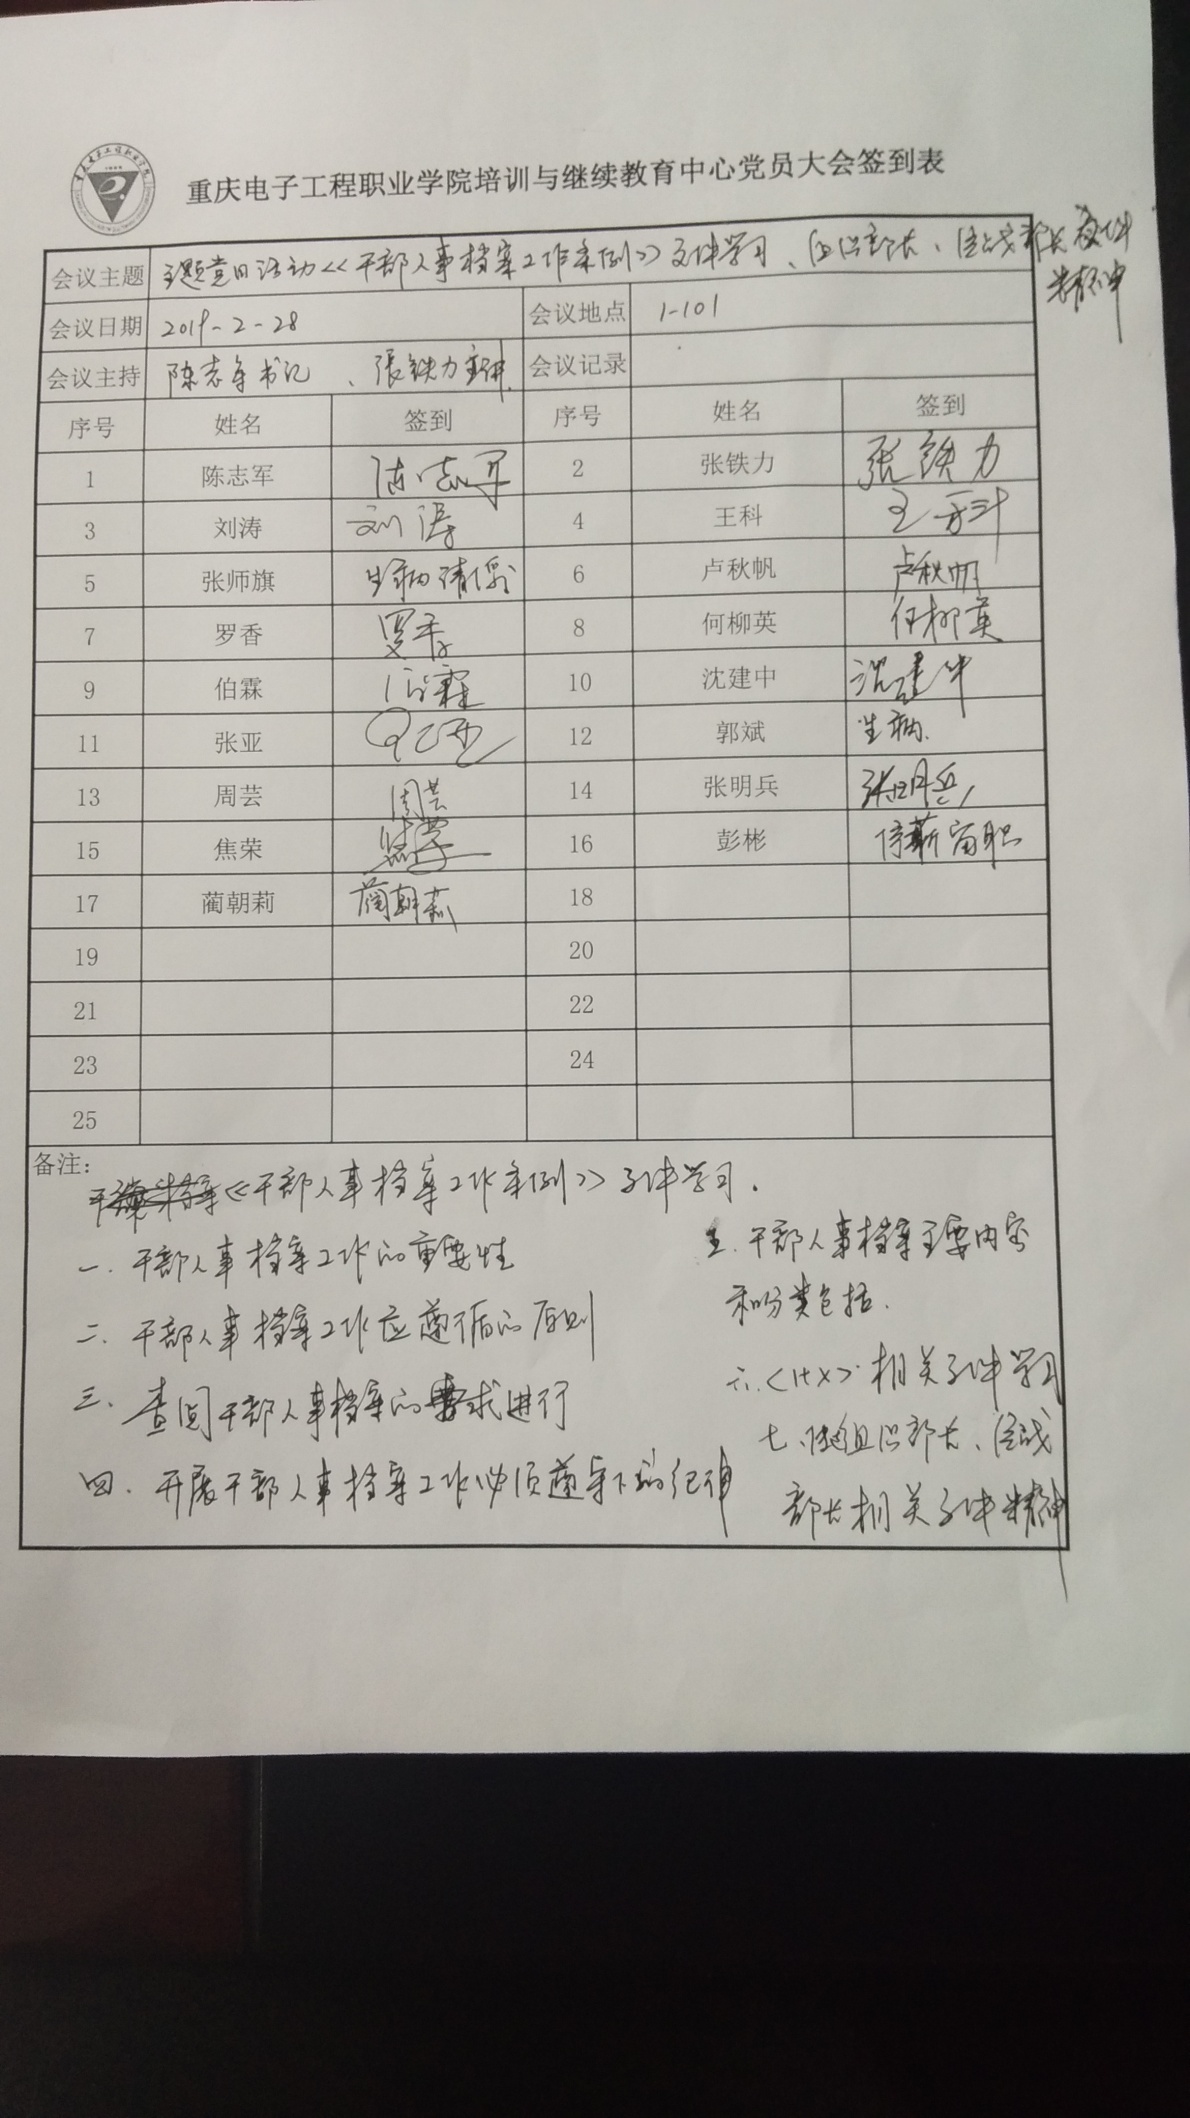 重庆电子工程职业学院培训与继续教育中心党员大会签到表
会议主题 主题党日活动《干部人事档案工作条例》文件学习、组织部长、统战部长文件
精神
会议日期 2019-2-28 会议地点 1-101
会议主持 陈志军书记、张铁力主讲. 会议记录
序号 姓名 签到 序号 姓名 签到
1 陈志军 陈志军 2 张铁力 张铁力
3 刘涛 刘涛 4 王科 王科
5 张师旗 生病请假 6 卢秋帆 卢秋帆
7 罗香 罗香 8 何柳英 何柳英
9 伯霖 伯霖 10 沈建中 沈建中
11 张亚 张亚 12 郭斌 生病.
13 周芸 周芸 14 张明兵 张明兵
15 焦荣 焦荣 16 彭彬 停薪留职
17 蔺朝莉 蔺朝莉 18
19 20
21 22
23 24
25
备注:
《干部人事档案工作条例》文件学习.
一. 干部人事档案工作的重要性
二. 干部人事档案工作应遵循的原则
三. 查阅干部人事档案的要求进行
四. 开展干部人事档案工作必须遵守下的纪律
五. 干部人事档案主要内容
和分类包括.
六. 相关文件学习
七、组织部长、统战
部长相关文件精神